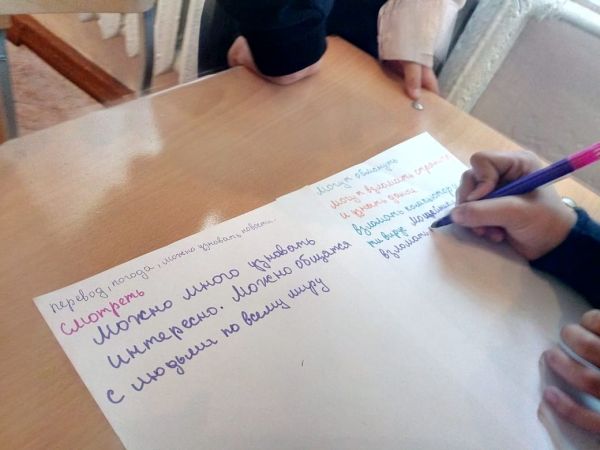 перевод, погода, можно узнавать новости.
Смотреть
Можно много узновать
интересно. Можно общатся
с людьми по всему миру
могут обмануть
могут взломать страниц
и узнать даной
взломать компьютер
ти виру мошейник
взломать